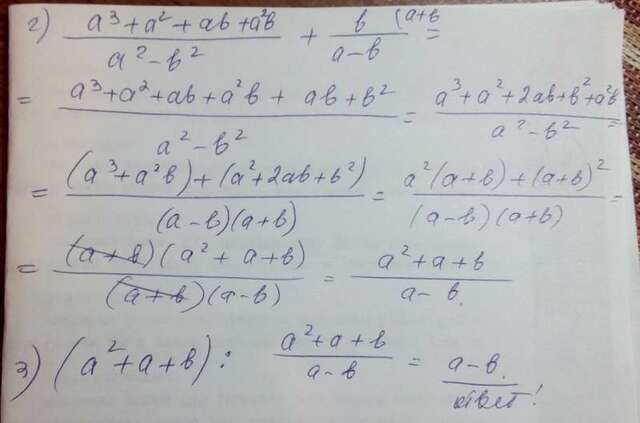 2) (a³+a²+ab+a²b)/(a²-b²) + b/(a-b) (a+b =
= (a³+a²+ab+a²b+ab+b²)/(a²-b²) = (a³+a²+2ab+b²+a²b)/(a²-b²) =
= ((a³+a²b)+(a²+2ab+b²))/((a-b)(a+b)) = (a²(a+b)+(a+b)²)/((a-b)(a+b)) =
= ((a+b)(a²+a+b))/((a+b)(a-b)) = (a²+a+b)/(a-b.)
3) (a²+a+b): (a²+a+b)/(a-b) = a-b.
ответ!